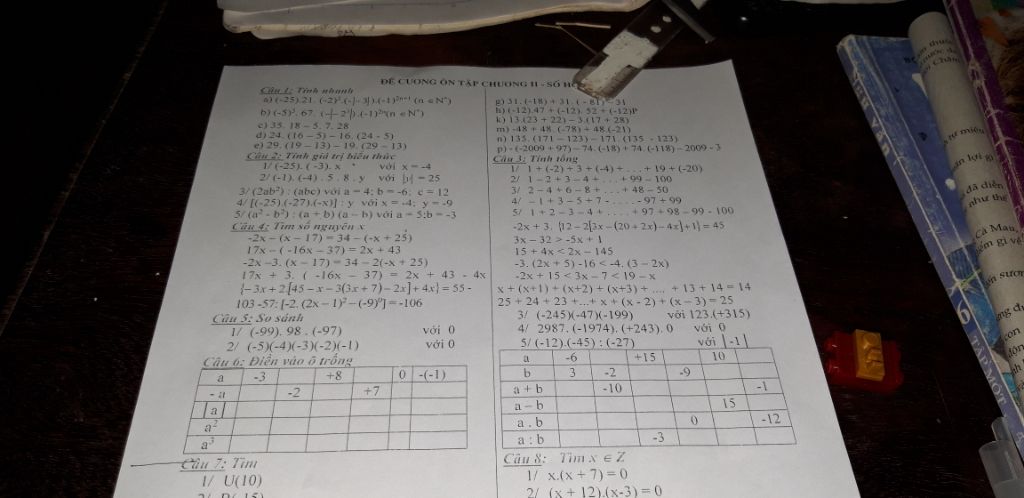 ĐỀ CƯƠNG ÔN TẬP CHƯƠNG II - SỐ
Câu 1: Tính nhanh
a) (-25).21. (-2)².(-|-3|).(-1)²ⁿ⁺¹ (n ∈N*)
b) (-5)³. 67. (-|-2³|).(-1)²ⁿ(n ∈N*)
c) 35. 18 – 5. 7. 28
d) 24. (16 – 5) – 16. (24 - 5)
e) 29. (19 – 13) – 19. (29 – 13)
Câu 2: Tính giá trị biểu thức
1/ (-25). ( -3). x với x = -4
2/ (-1). (-4) . 5 . 8 . y với |y| = 25
3/ (2ab²) : (abc) với a = 4; b = -6; c = 12
4/ [(-25).(-27).(-x)] : y với x = -4; y = -9
5/ (a² - b²) : (a + b) (a – b) với a = 5;b = -3
Câu 4: Tìm số nguyên x
-2x – (x – 17) = 34 – (-x + 25)
17x – ( -16x – 37) = 2x + 43
-2x –3. (x – 17) = 34 – 2(-x + 25)
17x + 3. ( -16x – 37) = 2x + 43 - 4x
{–3x + 2.[45 – x – 3(3x + 7) – 2x] + 4x} = 55 -
103 -57: [-2. (2x – 1)² – (-9)⁰] = -106
Câu 5: So sánh
1/ (-99). 98 . (-97) với 0
2/ (-5)(-4)(-3)(-2)(-1) với 0
Câu 6: Điền vào ô trống
a -3 +8 0 -(-1)
- a -2 +7
|a|
a²
a³
Câu 7: Tìm
1/ U(10)
g) 31. (-18) + 31. ( - 81) – 31
h) (-12).47 + (-12). 52 + (-12)
k) 13.(23 + 22) – 3.(17 + 28)
m) -48 + 48. (-78) + 48.(-21)
n) 135. (171 – 123) – 171. (135 - 123)
p) - (-2009 + 97) – 74. (-18) + 74. (-118) – 2009 - 3
Câu 3: Tính tổng
1/ 1 + (-2) + 3 + (-4) + . . . + 19 + (-20)
2/ 1 – 2 + 3 – 4 + . . . + 99 – 100
3/ 2 – 4 + 6 – 8 + . . . + 48 – 50
4/ – 1 + 3 – 5 + 7 - . . . . - 97 + 99
5/ 1 + 2 – 3 – 4 + . . . . + 97 + 98 – 99 - 100
-2x + 3. {12 – 2[3x – (20 + 2x) – 4x] +1} = 45
3x – 32 > -5x + 1
15 + 4x < 2x – 145
-3. (2x + 5) -16 < -4. (3 – 2x)
-2x + 15 < 3x – 7 < 19 – x
x + (x+1) + (x+2) + (x+3) + .... + 13 + 14 = 14
25 + 24 + 23 +...+ x + (x - 2) + (x – 3) = 25
3/ (-245)(-47)(-199) với 123.(+315)
4/ 2987. (-1974). (+243). 0 với 0
5/ (-12).(-45) : (-27) với |-1|
a -6 +15 10
b 3 -2 -9
a + b -10 -1
a – b 15
a . b 0 -12
a : b -3
Câu 8: Tìm x ∈ Z
1/ x.(x + 7) = 0
2/ (x + 12).(x-3) = 0
đã diễn
như thế
Cà Mau,
6